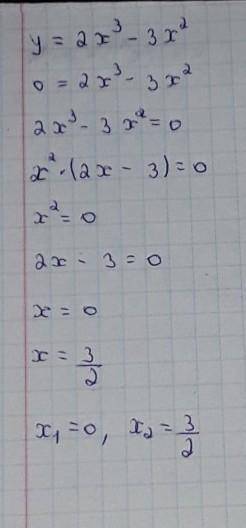 y = 2x³ - 3x²
0 = 2x³ - 3x²
2x³ - 3x² = 0
x² · (2x - 3) = 0
x² = 0
2x - 3 = 0
x = 0
x = 3/2
x₁ = 0, x₂ = 3/2